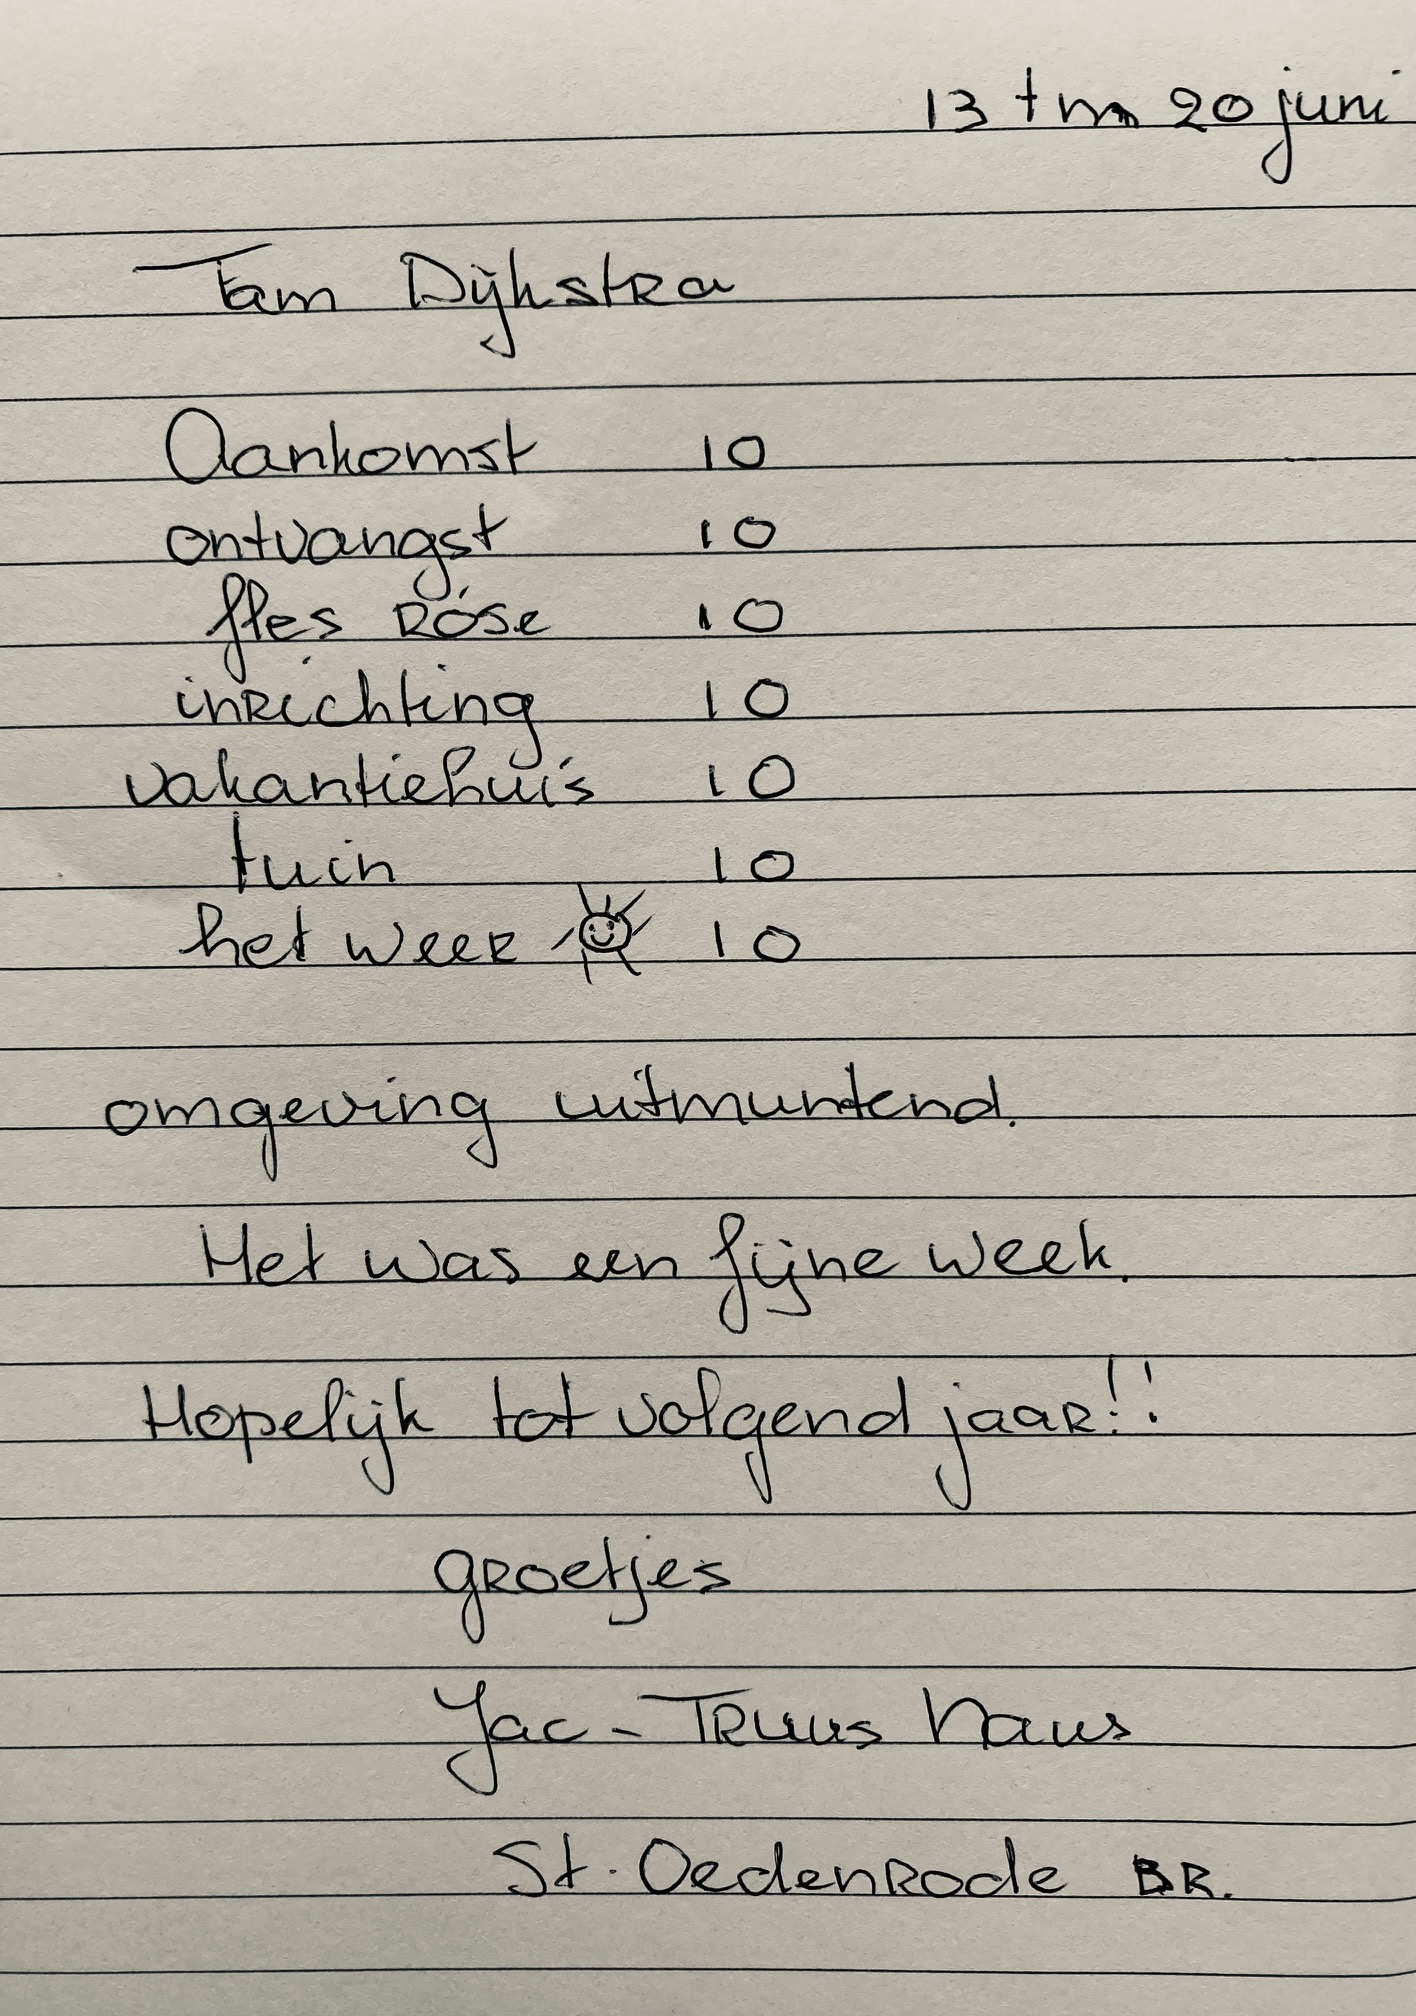 13 tm 20 juni
Fam Dijkstra
Aankomst 10
ontvangst 10
fles róse 10
inrichting 10
vakantiehuis 10
tuin 10
het weer 10
omgeving uitmuntend.
Het was een fijne week.
Hopelijk tot volgend jaar!!
groetjes
Jac - Truus
St. Oedenrode BR.